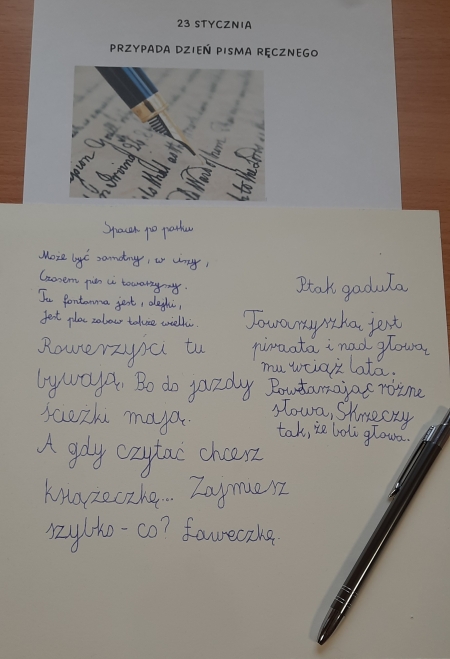 23 STYCZNIA
PRZYPADA DZIEŃ PISMA RĘCZNEGO
Spacer po parku
Może być samotny, w ciszy,
Czasem pies ci towarzyszy.
Tu fontanna jest, alejki,
Jest plac zabaw także wielki.
Rowerzyści tu
bywają, Bo do jazdy
ścieżki mają.
A gdy czytać chcesz
książeczkę... Zajmiesz
szybko - co? Ławeczkę.
Ptak gaduła
Towarzyszką jest
piraata i nad głową
mu wciąż lata.
Powtarzając różne
słowa, Skrzeczy
tak, że boli głowa.